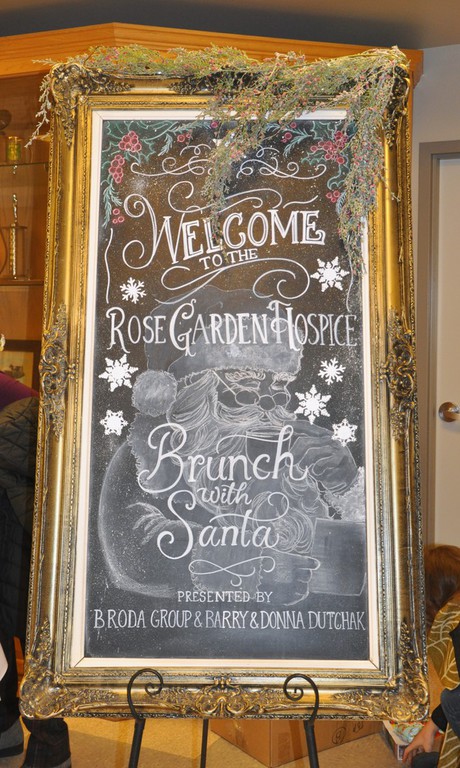 WELCOME
TO THE
ROSE GARDEN HOSPICE
Brunch
with
Santa
PRESENTED BY
BRODA GROUP & BARRY & DONNA DUTCHAK